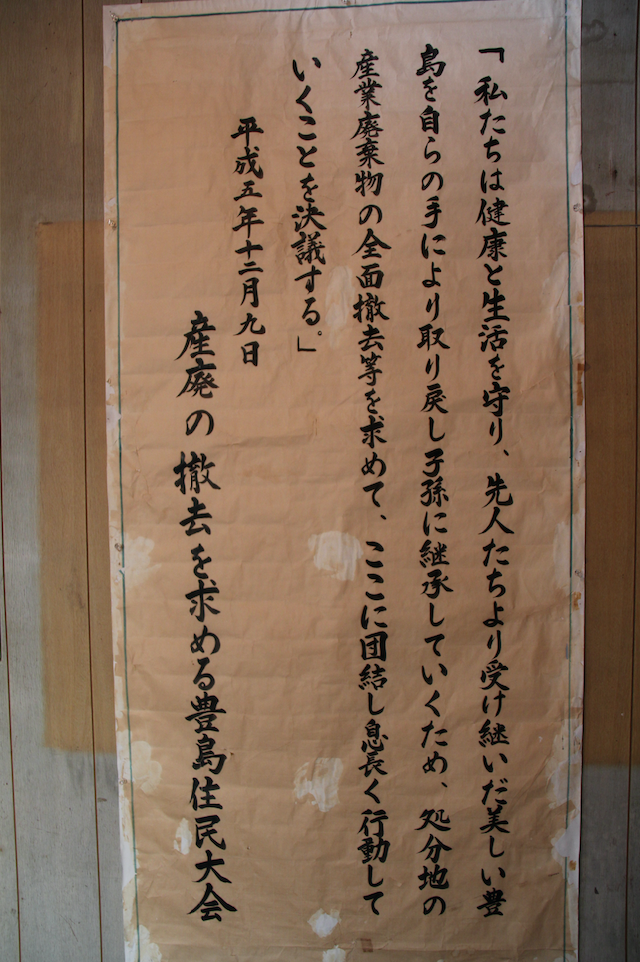 「私たちは健康と生活を守り、先人たちより受け継いだ美しい豊
島を自らの手により取り戻し子孫に継承していくため、処分地の
産業廃棄物の全面撤去等を求めて、ここに団結し息長く行動して
いくことを決議する。」
平成五年十二月九日
産廃の撤去を求める豊島住民大会